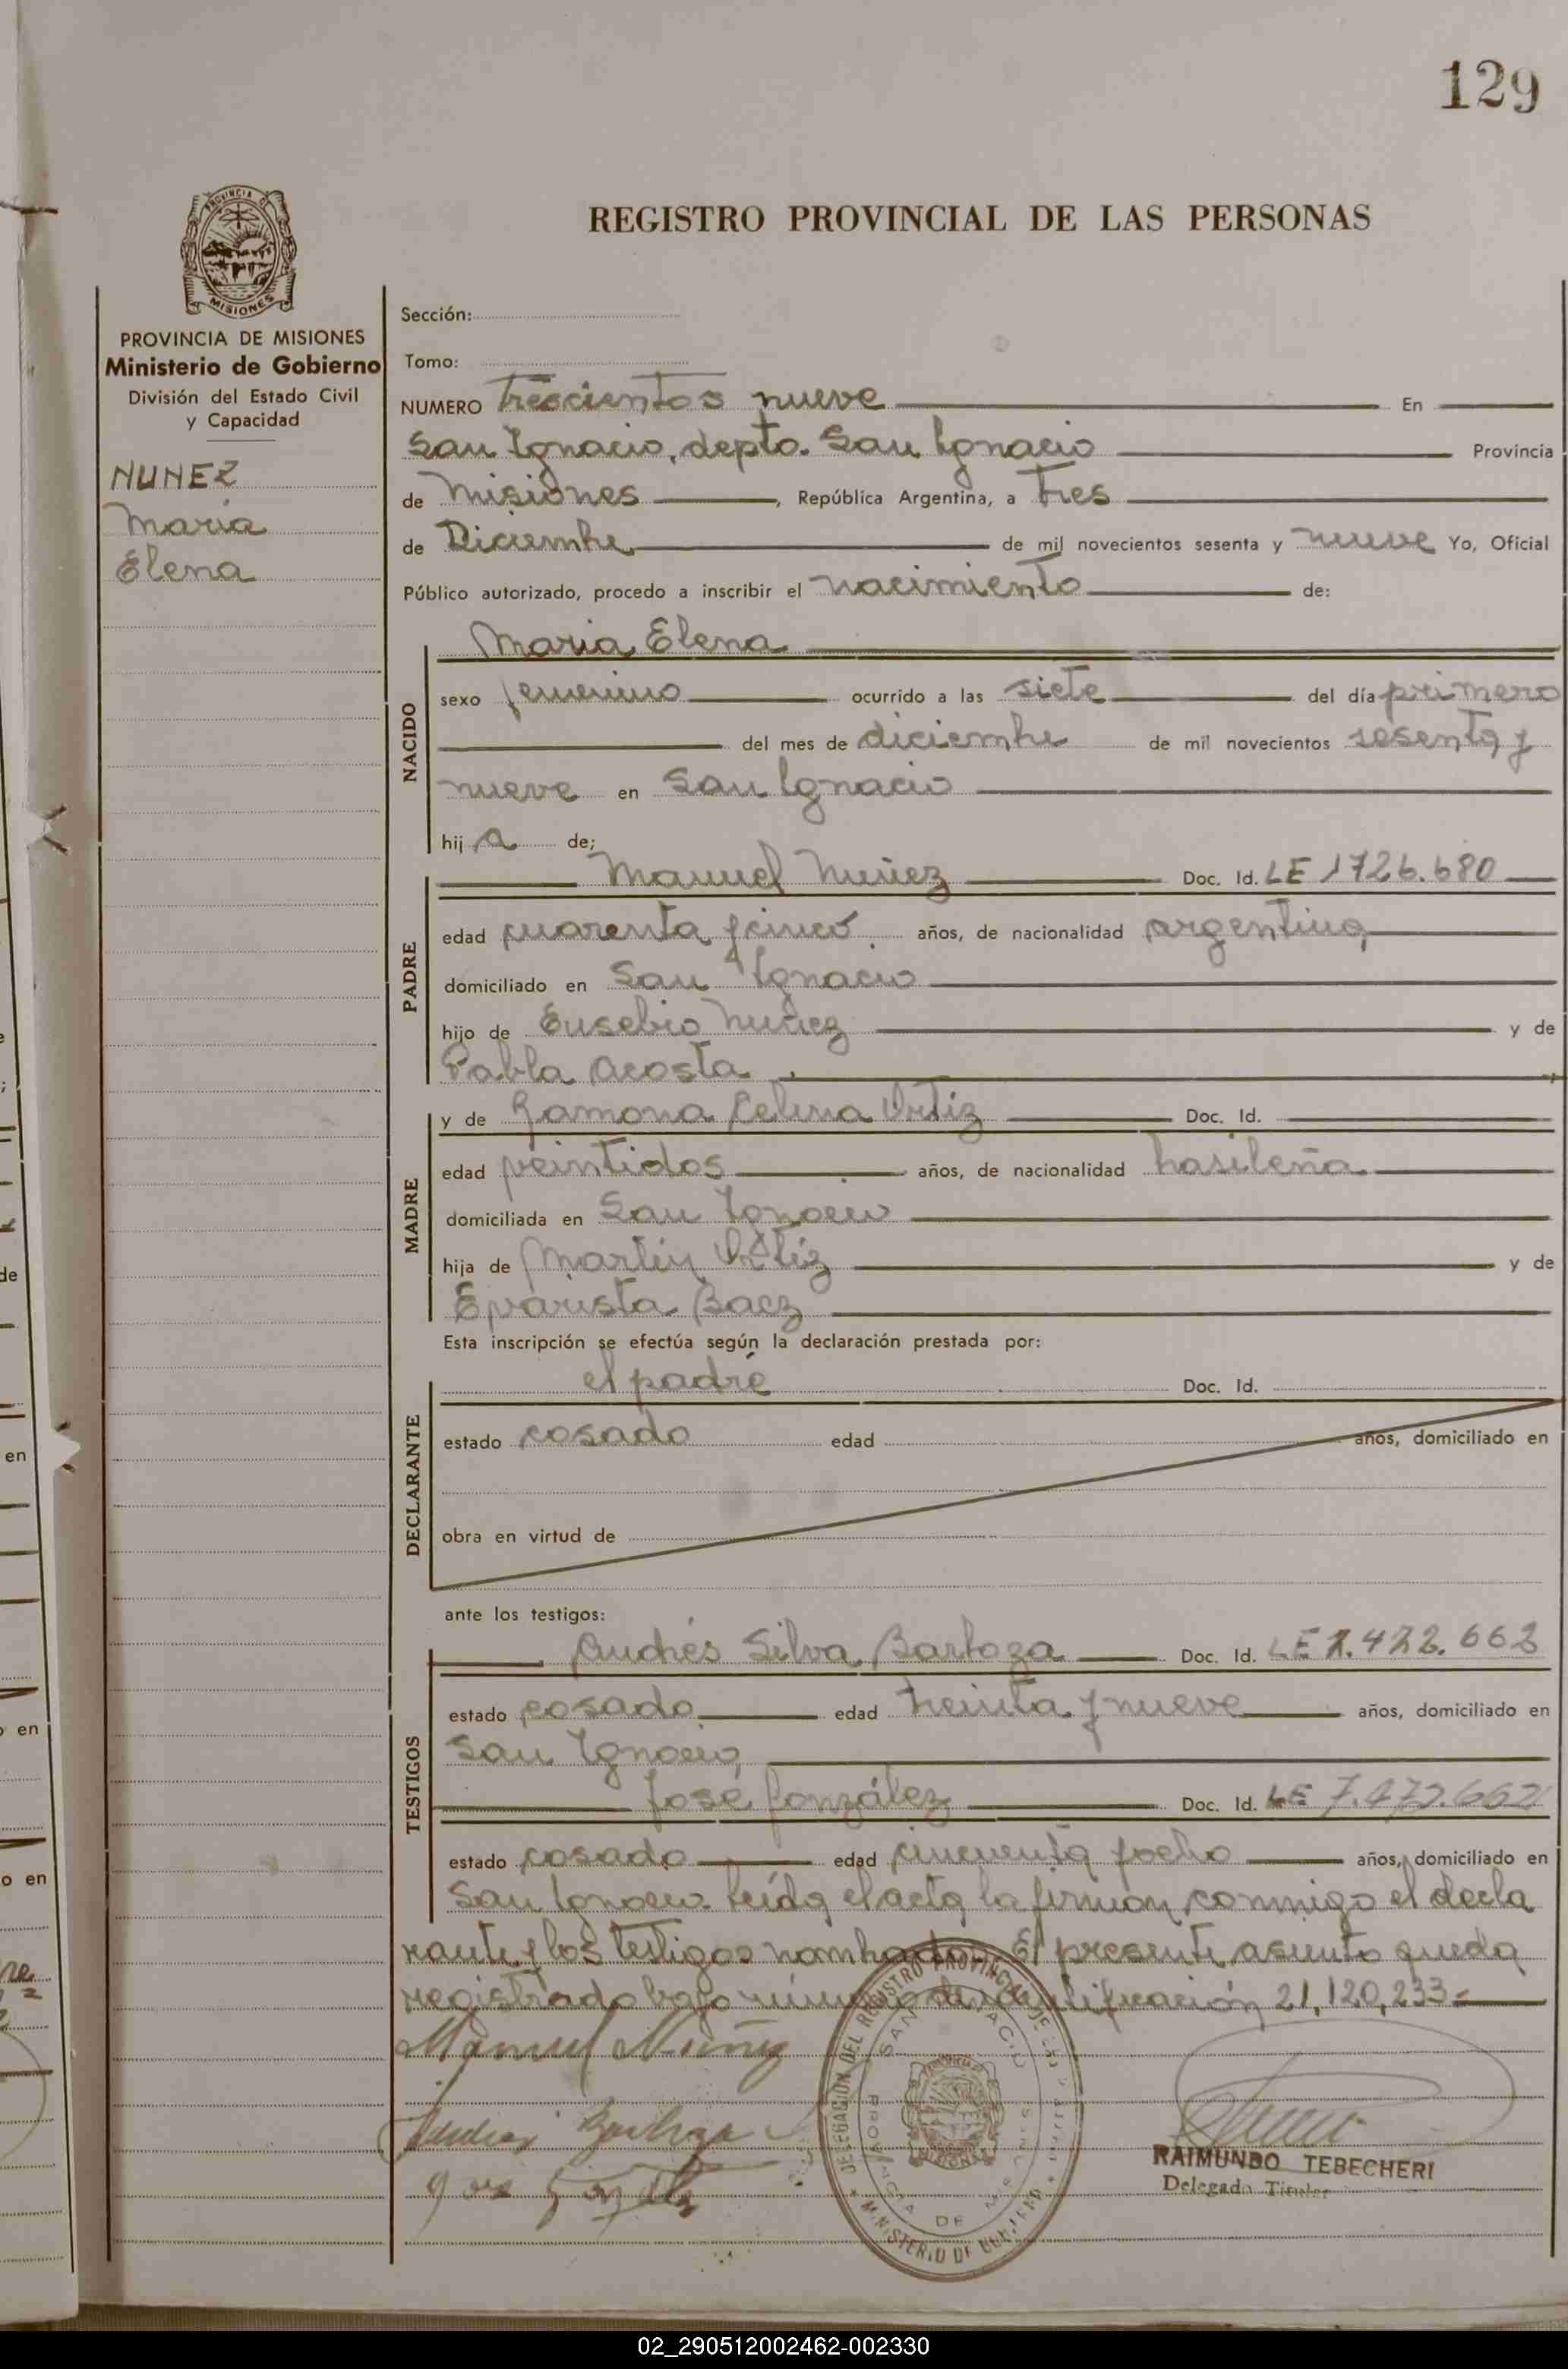 129
REGISTRO PROVINCIAL DE LAS PERSONAS
PROVINCIA DE MISIONES
Ministerio de Gobierno
División del Estado Civil
y Capacidad
NUNEZ
Maria
Elena
Sección:
Tomo:
NUMERO Trescientos nueve En
San Ignacio, depto. San Ignacio Provincia
de Misiones, República Argentina, a Tres
de Diciembre de mil novecientos sesenta y nueve Yo, Oficial
Público autorizado, procedo a inscribir el nacimiento de:
NACIDO
Maria Elena
sexo femenino ocurrido a las siete del día primero
del mes de diciembre de mil novecientos sesenta y
nueve en San Ignacio
hij a de;
PADRE
Manuel Nuñez Doc. Id. LE 1726.680
edad cuarenta y cinco años, de nacionalidad argentina
domiciliado en San Ignacio
hijo de Eusebio Nuñez y de
Pabla Acosta
MADRE
y de Ramona Celina Ortiz Doc. Id.
edad veintidos años, de nacionalidad brasileña
domiciliada en San Ignacio
hija de Martin Ortiz y de
Evarista Baez
Esta inscripción se efectúa según la declaración prestada por:
DECLARANTE
el padre Doc. Id.
estado casado edad años, domiciliado en
obra en virtud de
ante los testigos:
TESTIGOS
Andrés Silva Barboza Doc. Id. LE 7.472.662
estado casado edad treinta y nueve años, domiciliado en
San Ignacio
José González Doc. Id. LE 7.472.662
estado casado edad cincuenta y ocho años, domiciliado en
San Ignacio. Leída el acta la firman conmigo el decla
rante y los testigos nombrados. El presente asiento queda
registrado bajo número de identificación 21,120,233=
Manuel Nuñez
Andres Barboza
Jose Gonzalez
DELEGACION DEL REGISTRO PROVINCIAL DE LAS PERSONAS
SAN IGNACIO
PROVINCIA DE MISIONES
MINISTERIO DE GOBIERNO
RAIMUNDO TEBECHERI
Delegado Titular
02_290512002462-002330